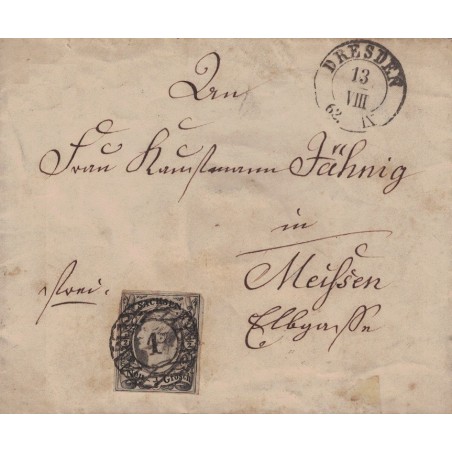 DRESDEN
13
VIII
62. IV
An
Frau Kaufmann Jähnig
in
Meissen
Elbgasse
frei.
SACHSEN
1
Neu Grosch